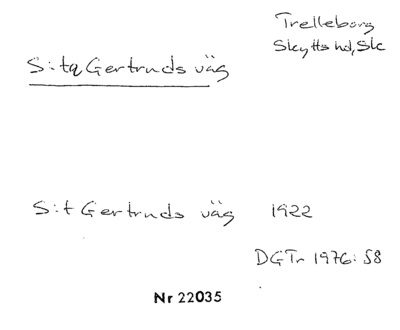 Trelleborg
Skytts hd, Sk
S:ta Gertruds väg
S:t Gertruds väg 1922
DGTr 1976:58
Nr 22035